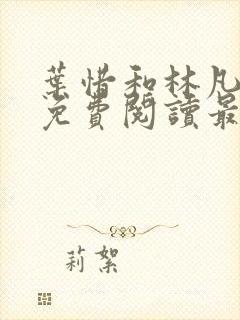 葉惜和林凡
免費閱讀最
莉絮